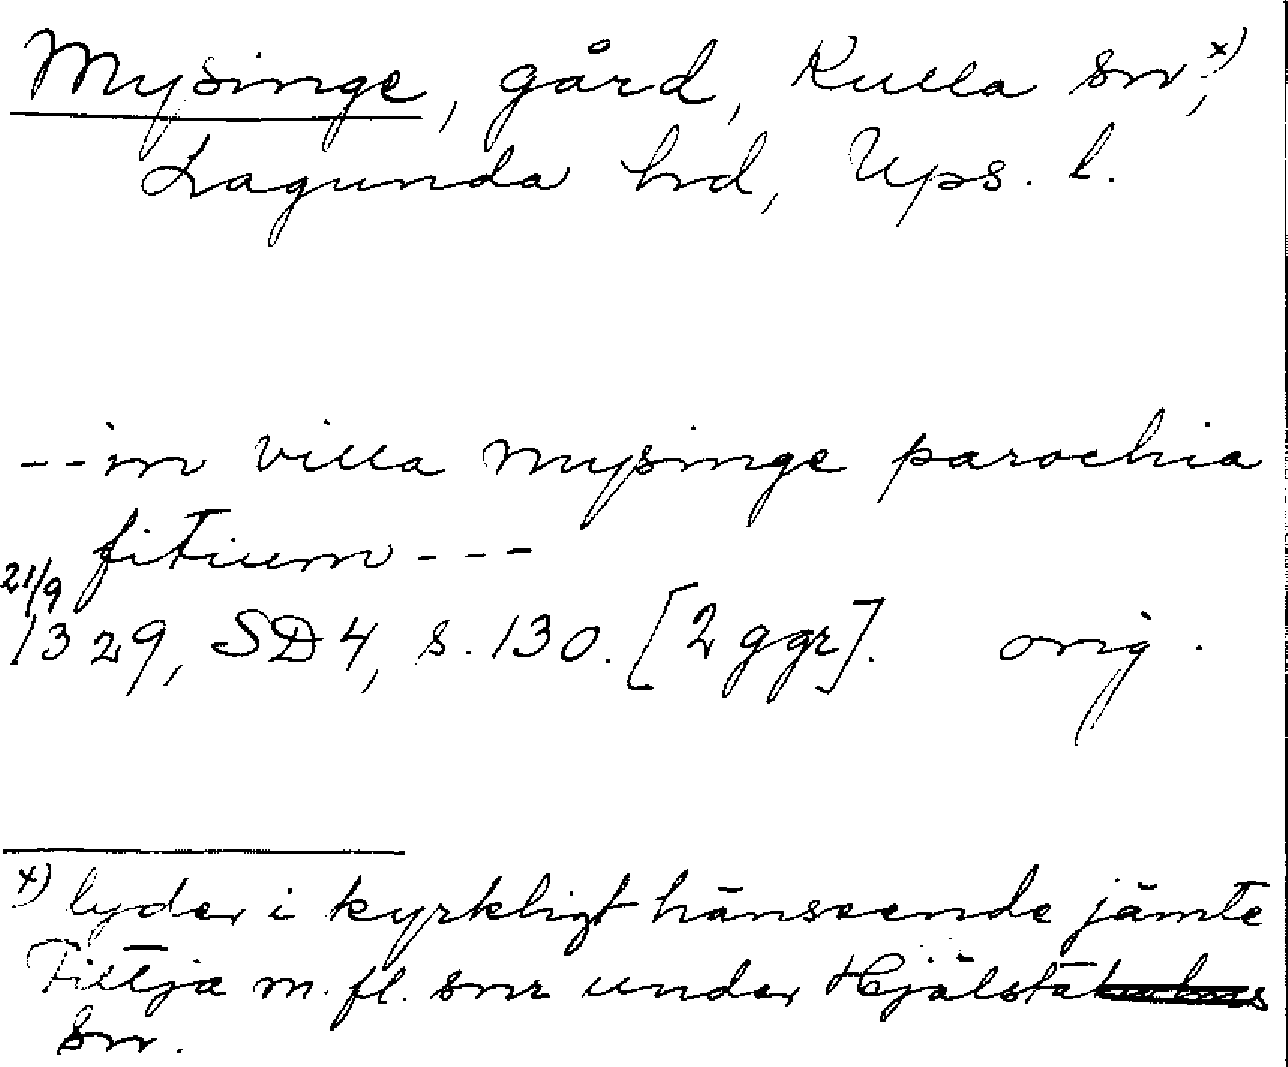 Mysinge, gård, Kulla sn x),
Lagunda hd, Ups. l.
--in villa mysinge parochia
fitium ---
21/9
1329, SD4, s. 130. [2 ggr]. orig.
x) lyder i kyrkligt hänseende jämte
Fittja m. fl. snr under Hjälsta
sn.